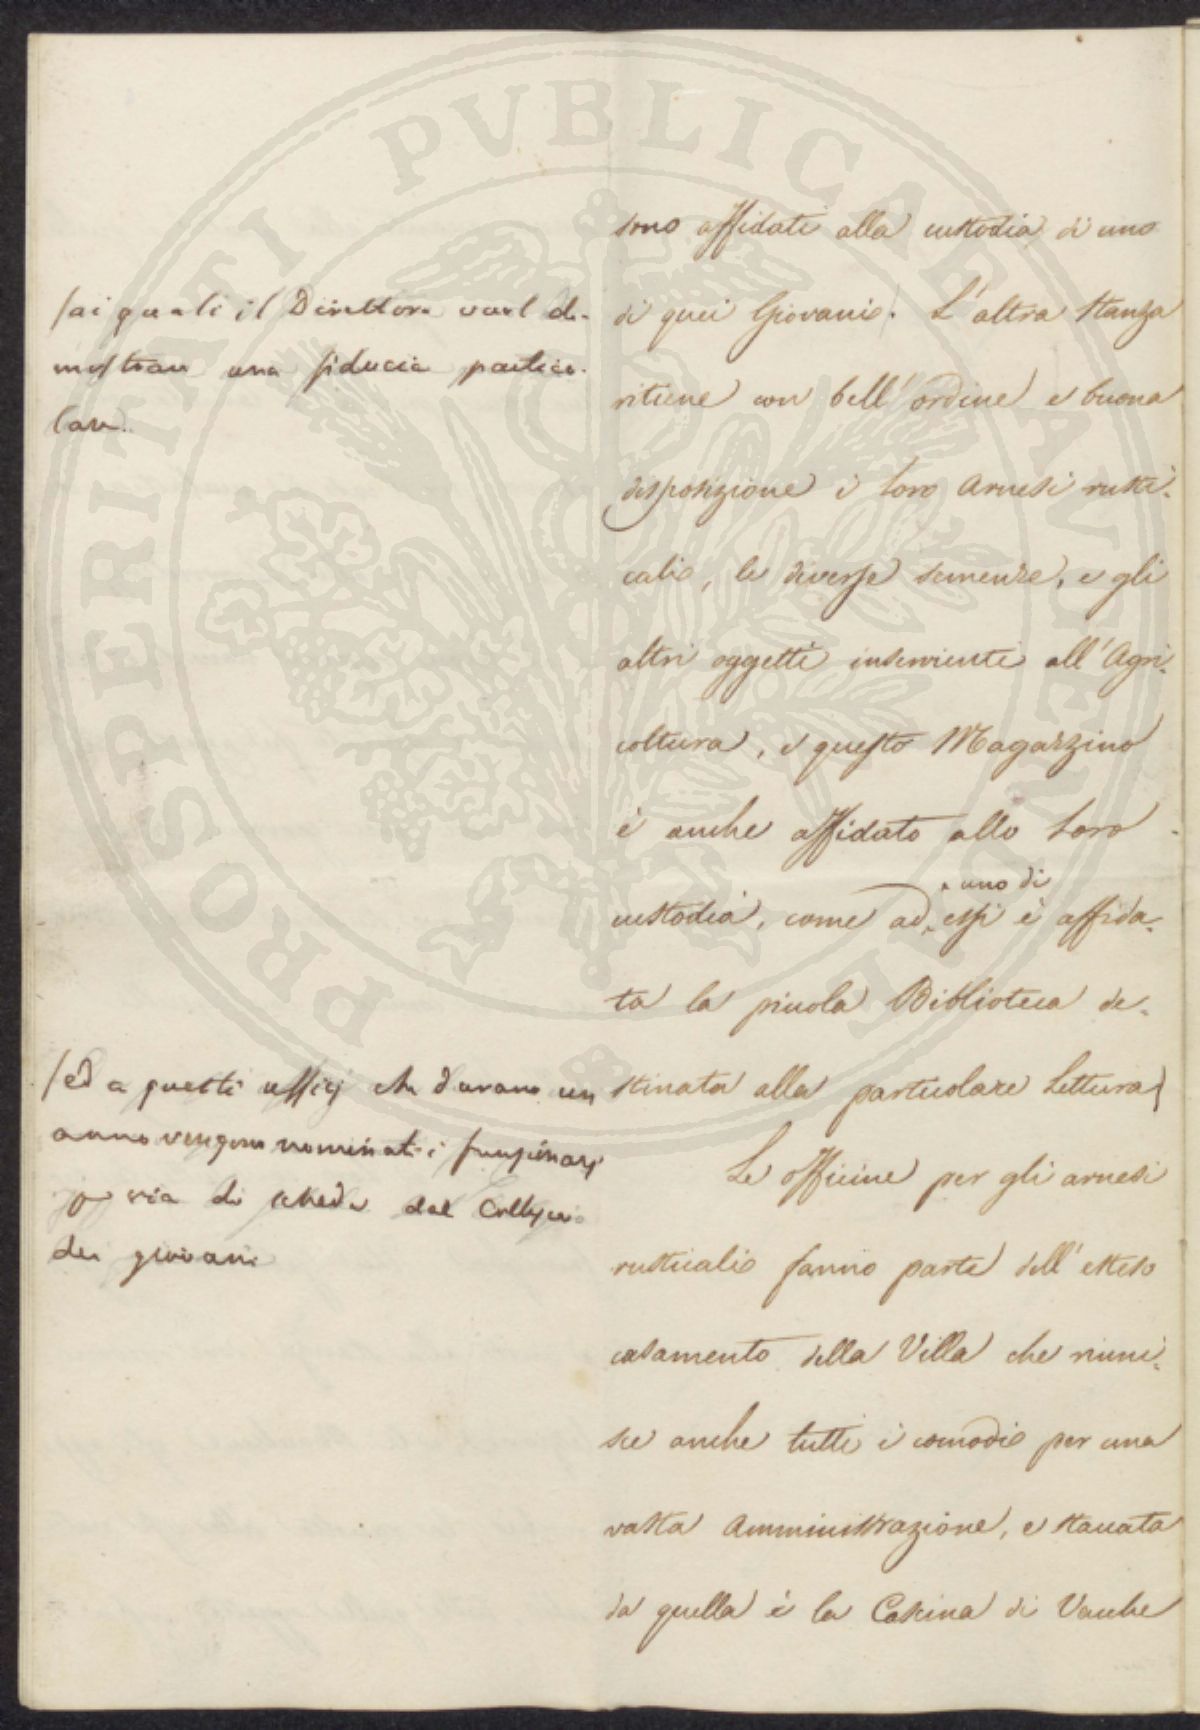 PROSPERITATI PVBLICAE AVGENDAE
sono affidati alla custodia di uno
di quei Giovani. L'altra Stanza
ritiene con bell'ordine e buona
disposizione i loro Arnesi rusti-
cali, le diverse semenze, e gli
altri oggetti inservienti all'Agri-
coltura, e questo Magazzino
è anche affidato alla loro
custodia, come ad uno di essi è affida-
ta la piccola Biblioteca de-
stinata alla particolare Lettura
Le officine per gli arnesi
rusticali fanno parte dell'esteso
casamento della Villa che riuni-
sce anche tutti i comodi per una
vasta Amministrazione, e staccata
da quella è la Cascina di Vacche
/ai quali il Direttore vuol di-
mostrare una fiducia partico-
lare.
/ed a questi ufficj che durano un
anno vengono nominati i funzionarj
per via di scheda dal Collegio
dei giovani